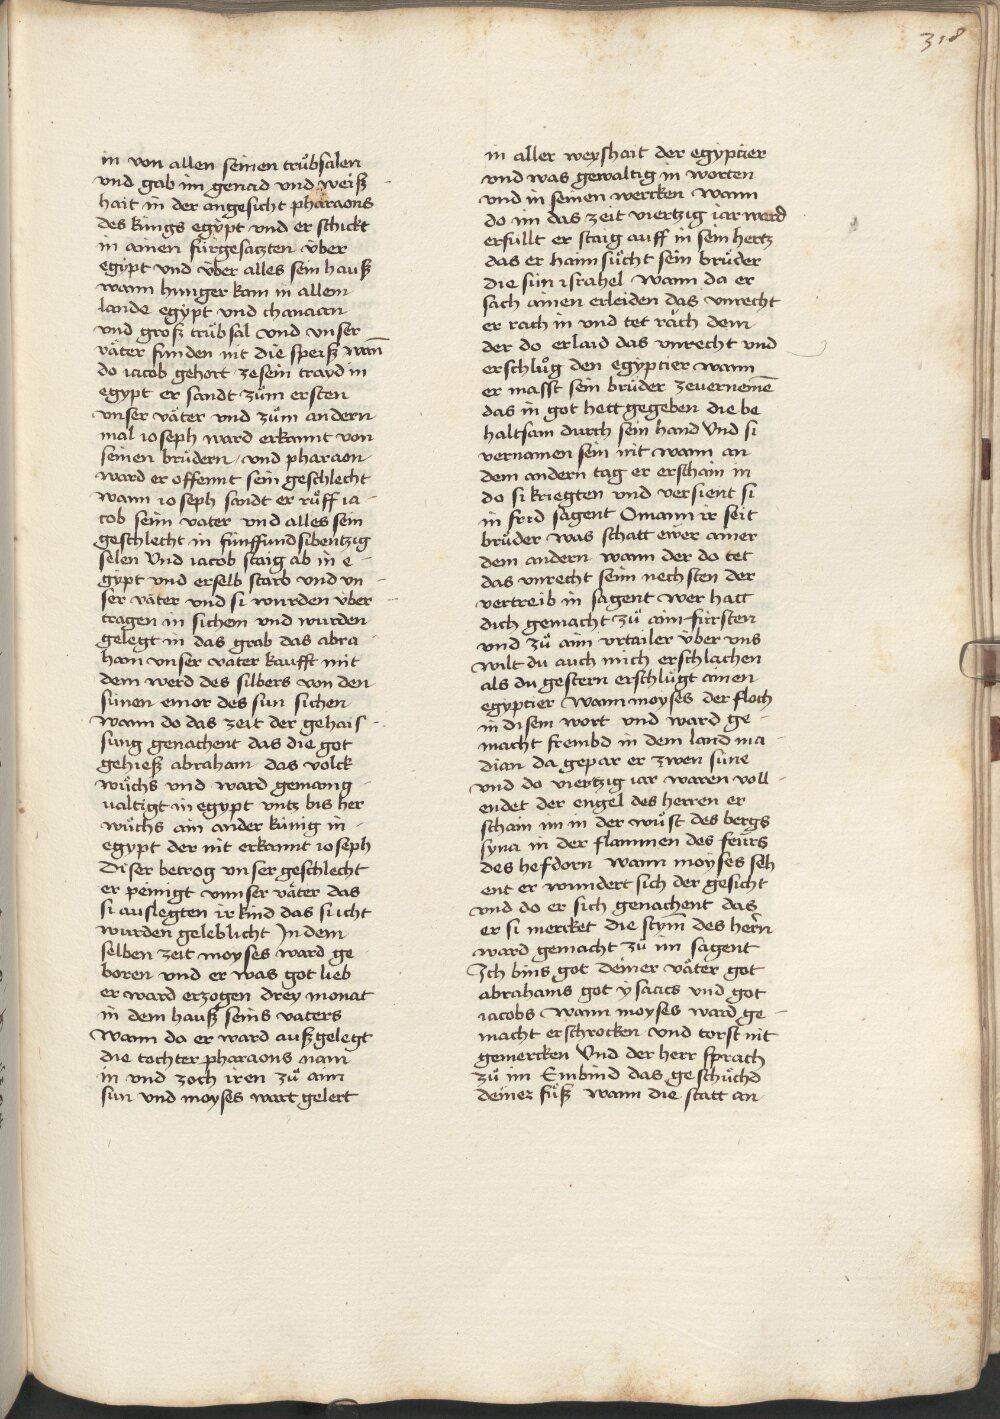 318
in von allen seinen trůbsalen
vnd gab im genad vnd weiß
hait in der angesicht pharaons
des kings egypt vnd er schickt
in ainen fürgesatzten über
egipt vnd über alles sein hauß
wann hunger kam in allem
lande egypt vnd chanaan
vnd groß trübsal vnd vnser
väter funden nit die speiß wan̄
do iacob gehort zesein trayd in
egypt er sandt zům ersten
vnser väter vnd zům andern
mal ioseph ward erkannt von
seinen brüdern / vnd pharaon
ward er offennt sein geschlecht
wann ioseph sandt er růff ia
cob seim vater vnd alles sein
geschlecht in fünffundsibentzig
selen Vnd iacob staig ab in e
gypt vnd erselb starb vnd vn
ser väter vnd si wurden über
tragen in sichem vnd wurden
gelegt in das grab das abra
ham vnser vater kaufft mit
dem werd des silbers von den
sünen emor des sun sichen
wann do das zeit der gehais
sung genachent das die got
gehieß abraham das volck
wůchs vnd ward gemanig
ualtigt in egypt vntz bis her
wůchs ain ander künig in
egypt der nit erkannt ioseph
Diser betrog vnser geschlecht
er peinigt vnnser väter das
si auslegten ir kind das si icht
wurden geleblicht In dem
selben zeit moyses ward ge
boren vnd er was got lieb
er ward erzogen drey monat
in dem hauß seins vaters
wann da er ward außgelegt
die tochter pharaons nam
in vnd zoch iren zů aim
sun vnd moyses wart gelert
in aller weyshait der egyptier
vnd was gewaltig in worten
vnd in seinen wercken wann
do im das zeit viertzig iar ward
erfüllt er staig auff in sein hertz
das er haimsůcht sein brüder
die sün israhel wann da er
sach ainen erleiden das vnrecht
er rach in vnd tet räch dem
der do erlaid das vnrecht vnd
erschlůg den egiptier wann
er masst sein brüder zeuernemē
das in got hett gegeben die be
haltsam durch sein hand Vnd si
vernamen sein nit wann an
dem andern tag er erschain in
do si kriegten vnd versient si
in frid sagent O mann ir seit
brüder was schatt ewer ainer
dem andern wann der do tet
das vnrecht seim nechsten der
vertreib in sagent wer hatt
dich gemacht zů aim fürsten
vnd zů aim vrtailer über vns
wilt du auch mich erschlachen
als du gestern erschlügt ainen
egyptier wann moyses der floch
in disem wort vnd ward ge
macht frembd in dem land ma
dian da gepar er zwen süne
vnd do viertzig iar waren voll
endet der engel des herren er
schain im in der wůst des bergs
syna in der flammen des feürs
des hefdorn wann moyses seh
ent er wundert sich der gesicht
vnd do er sich genachent das
er si mercket die stym̄ des herrn
ward gemacht zů im sagent
Ich bins got deiner väter got
abrahams got ysaacs vnd got
iacobs wann moyses ward ge
macht erschrocken vnd torst nit
gemercken Vnd der herr sprach
zů im Embind das geschůchd
deiner füß wann die statt an